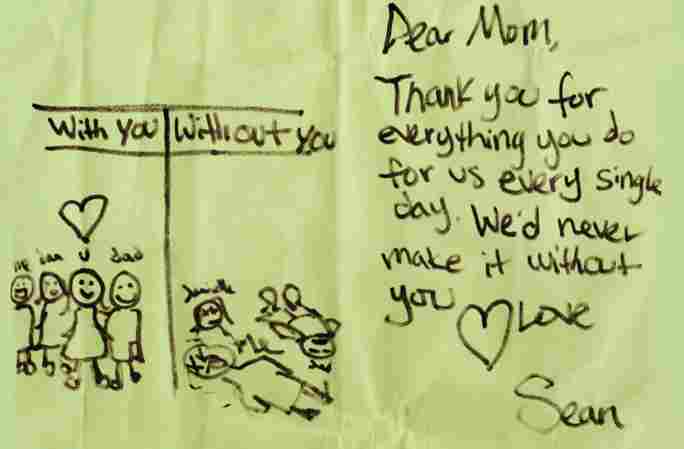 With you Without you
me Ian u dad
Dear Mom,
Thank you for
everything you do
for us every single
day. We'd never
make it without
you ♡ Love
Sean